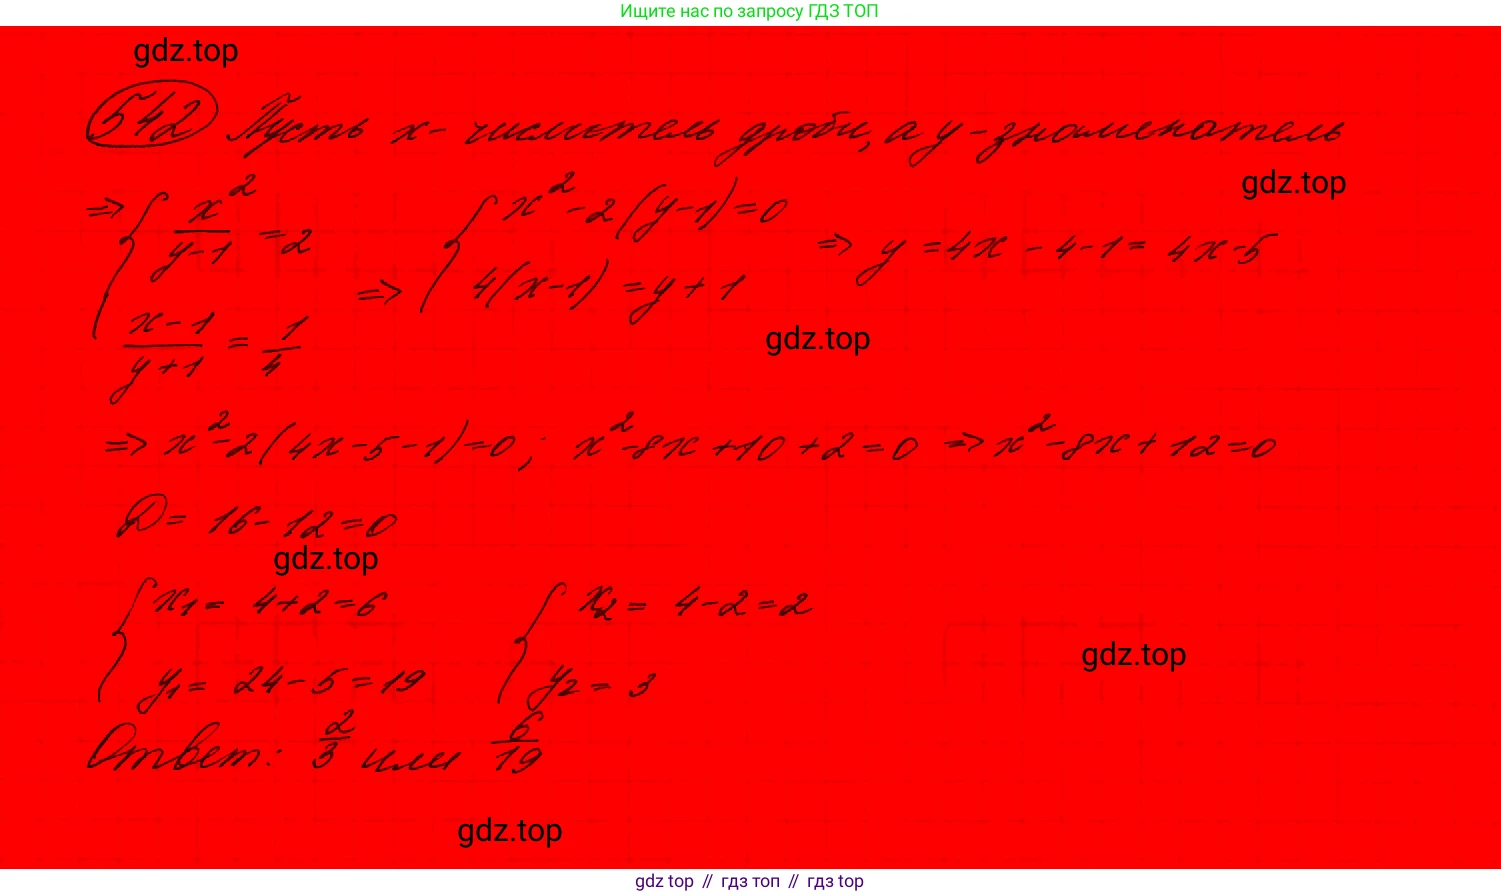 Ищите нас по запросу ГДЗ ТОП
gdz.top
542 Пусть x - числитель дроби, а y - знаменатель
gdz.top
⇒ { x²/(y-1) = 2 ⇒ { x² - 2(y-1) = 0 ⇒ y = 4x - 4 - 1 = 4x - 5
(x-1)/(y+1) = 1/4 4(x-1) = y + 1
gdz.top
⇒ x² - 2(4x - 5 - 1) = 0 ; x² - 8x + 10 + 2 = 0 ⇒ x² - 8x + 12 = 0
D = 16 - 12 = 0
gdz.top
{ x₁ = 4 + 2 = 6 { x₂ = 4 - 2 = 2
y₁ = 24 - 5 = 19 y₂ = 3
gdz.top
Ответ: 2/3 или 6/19
gdz.top
gdz top // гдз топ // гдз top